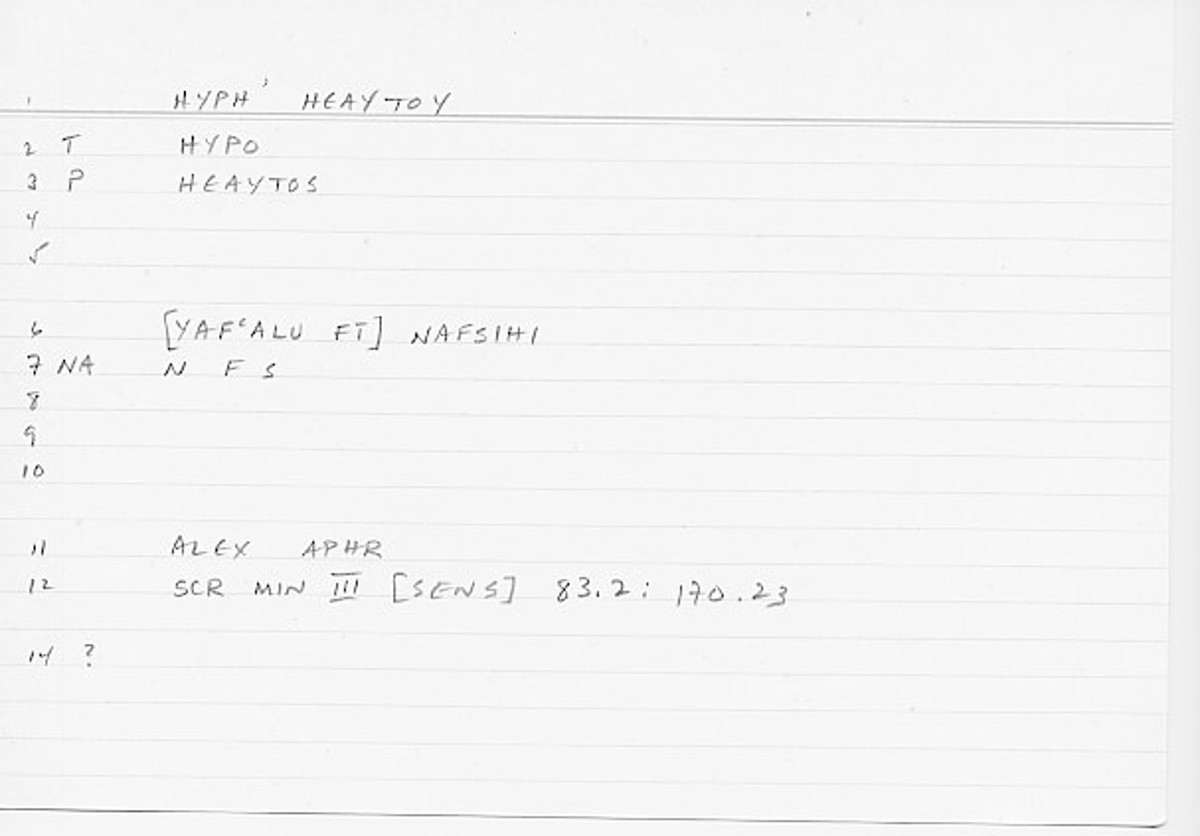 1 HYPH' HEAYTOY
2 T HYPO
3 P HEAYTOS
4
5
6 [YAF‘ALU FĪ] NAFSIHI
7 NA N F S
8
9
10
11 ALEX APHR
12 SCR MIN III [SENS] 83.2: 170.23
14 ?